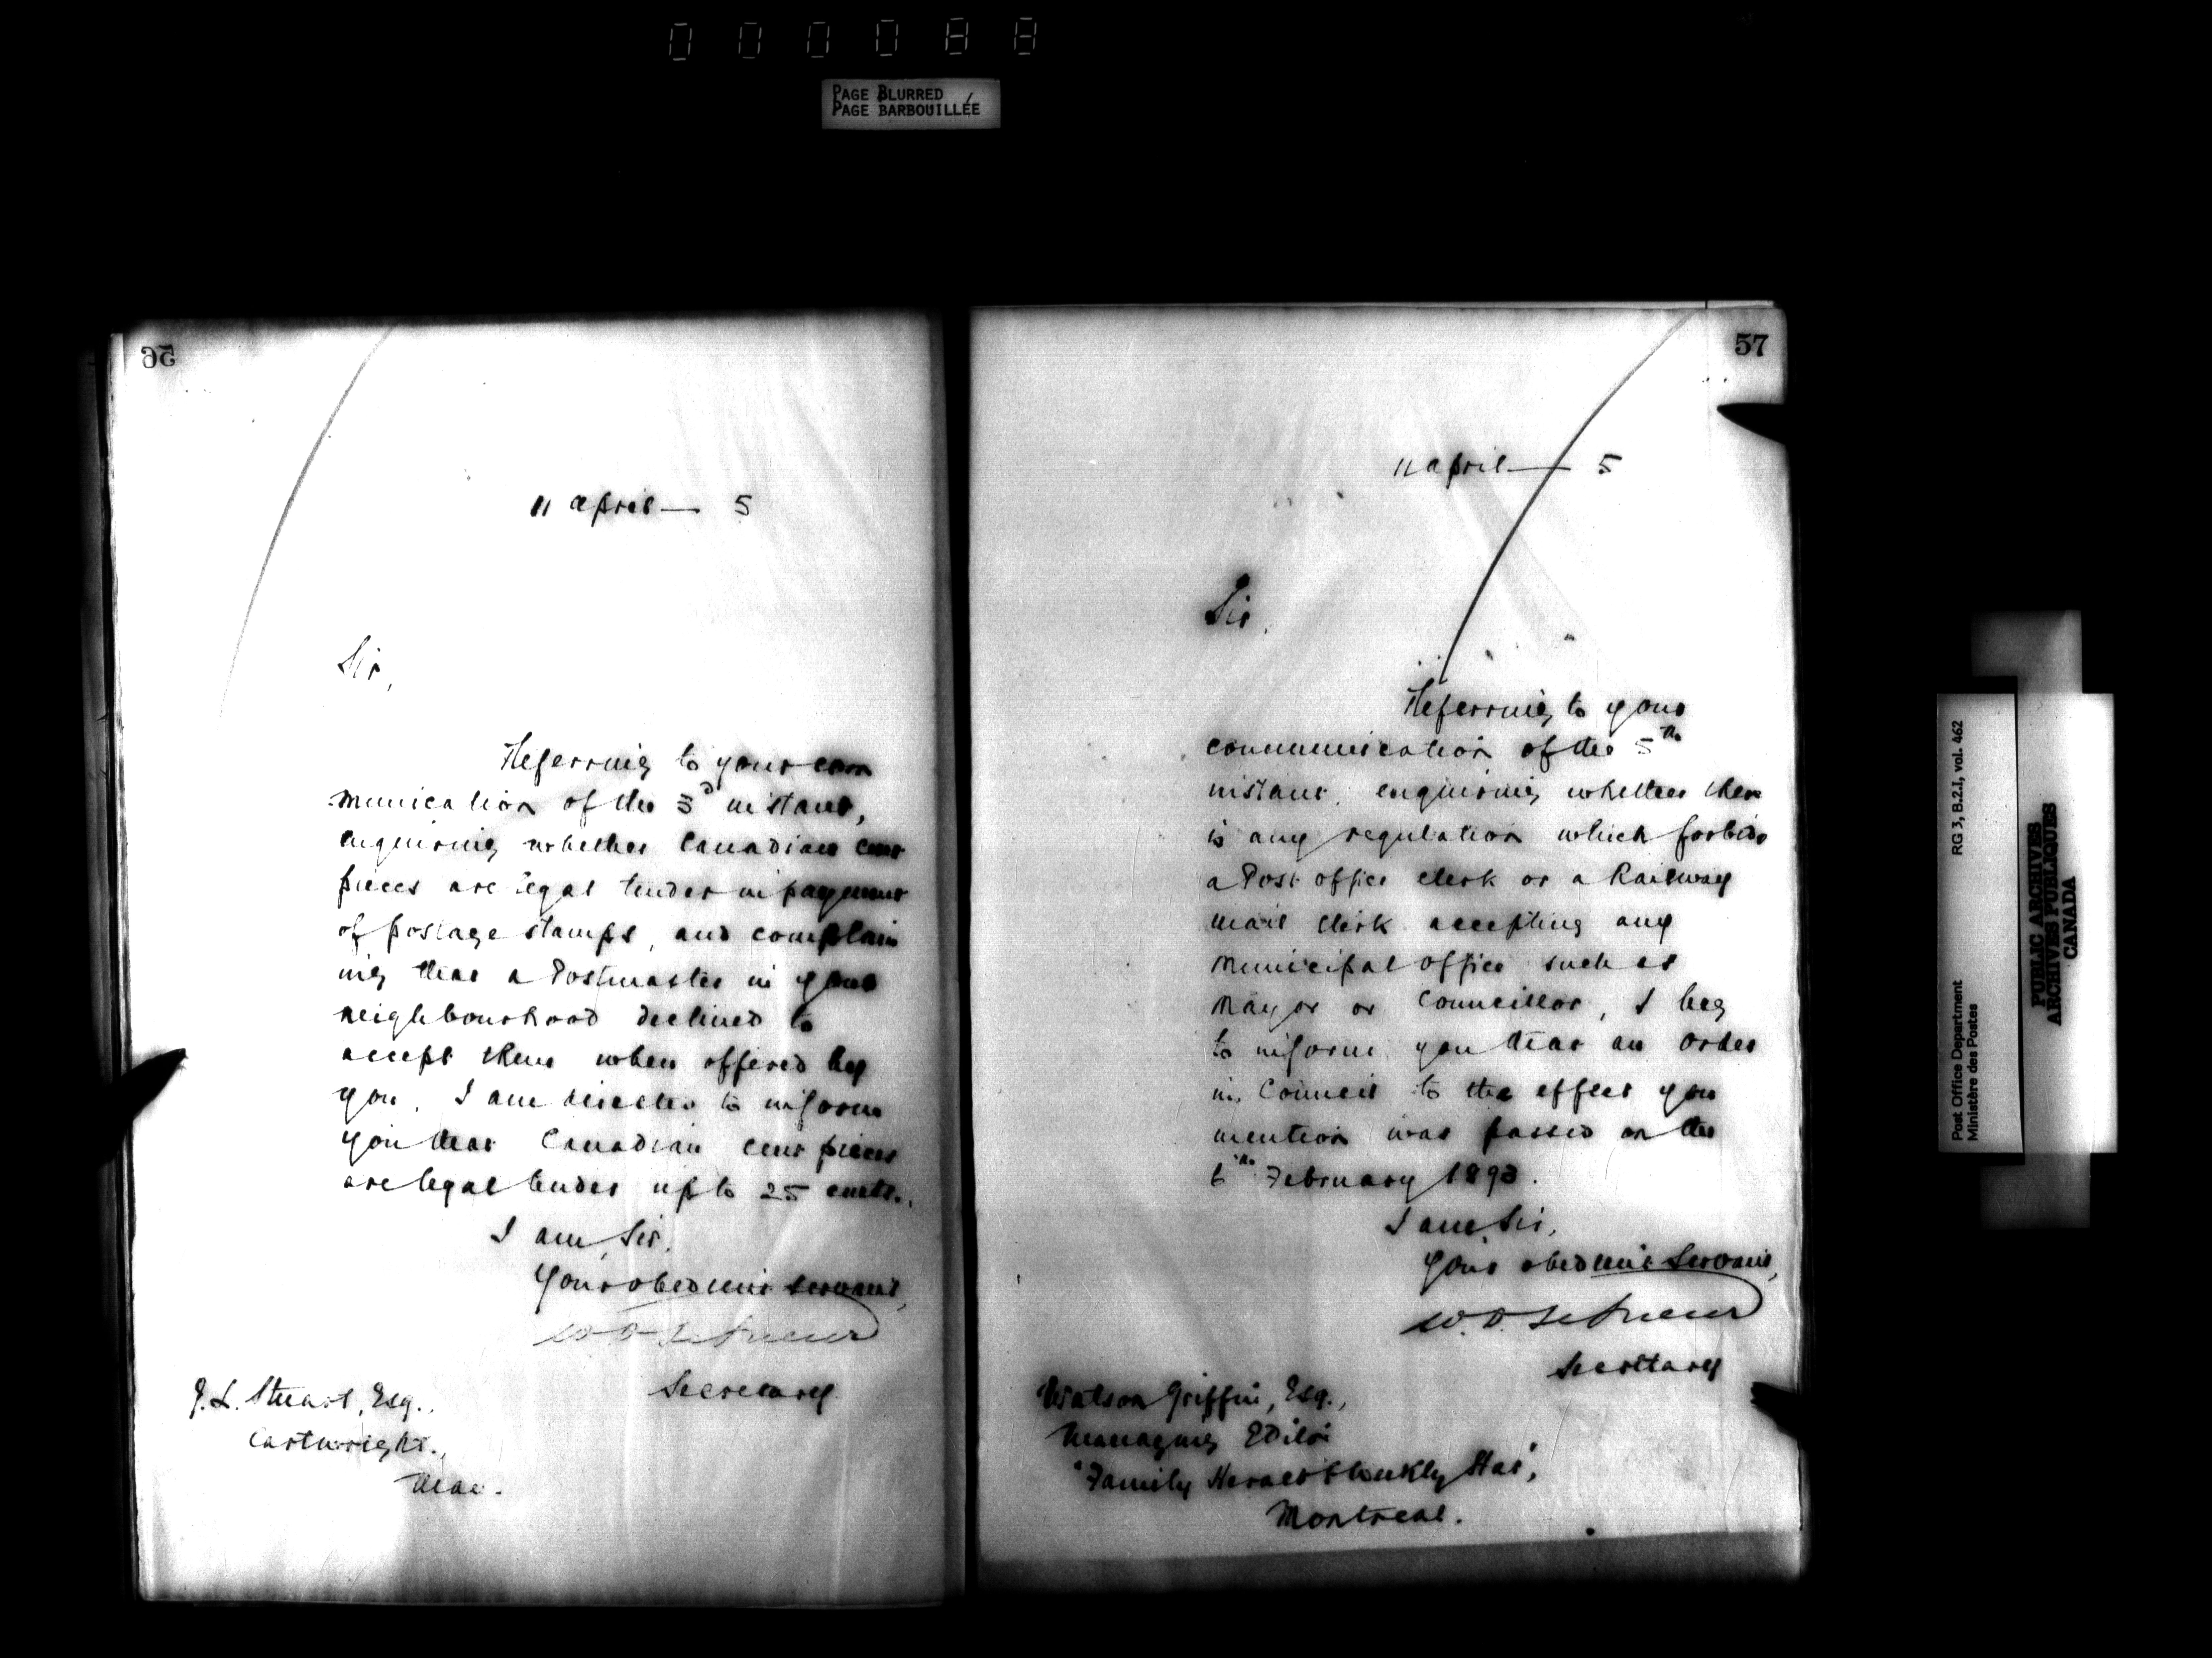 000088
PAGE BLURRED
PAGE BARBOUILLÉE
56
11 April — 5
Sir,
Referring to your com
munication of the 3d instant,
enquiring whether Canadian cent
pieces are legal tender in payment
of postage stamps, and complain
ing that a Postmaster in your
neighbourhood declined to
accept them when offered by
you, I am directed to inform
you that Canadian cent pieces
are legal tender up to 25 cents.
I am, Sir,
Your obedient servant,
W. D. LeSueur
Secretary
J. L. Stuart, Esq.,
Cartwright.,
Man.
57
11 April — 5
Sir,
Referring to your
communication of the 5th
instant, enquiring whether there
is any regulation which forbids
a Post office clerk or a Railway
mail clerk accepting any
municipal office such as
Mayor or Councillor, I beg
to inform you that an Order
in Council to the effect you
mention was passed on the
6th February 1893.
I am, Sir,
Your obedient Servant,
W. D. LeSueur
Secretary
Watson Griffin, Esq.,
Managing Editor
"Family Herald & Weekly Star",
Montreal.
Post Office Department RG 3, B.2.I., vol. 462
Ministère des Postes
PUBLIC ARCHIVES
ARCHIVES PUBLIQUES
CANADA